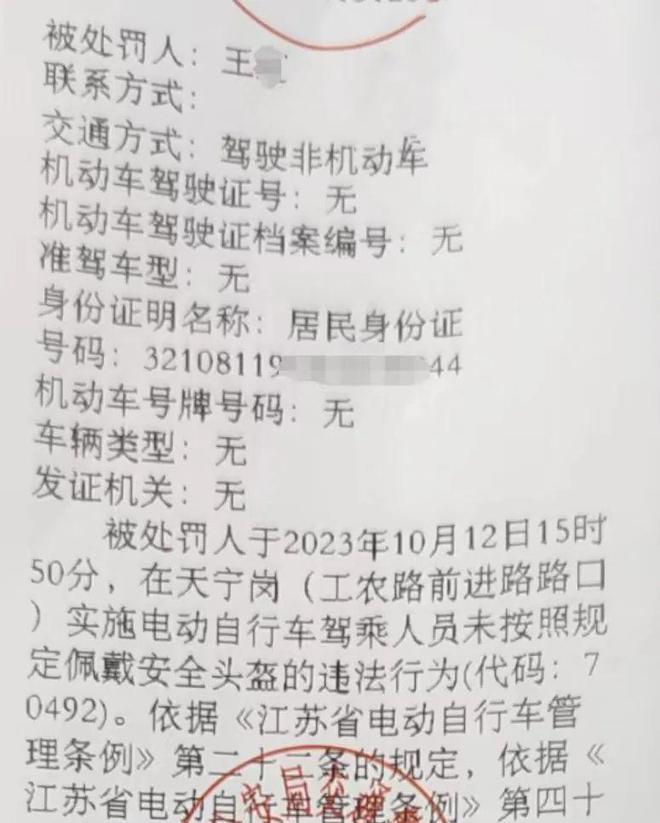 被处罚人：王
联系方式：
交通方式：驾驶非机动车
机动车驾驶证号：无
机动车驾驶证档案编号：无
准驾车型：无
身份证明名称：居民身份证
号码：32108119 44
机动车号牌号码：无
车辆类型：无
发证机关：无
被处罚人于2023年10月12日15时
50分，在天宁岗（工农路前进路路口
）实施电动自行车驾乘人员未按照规
定佩戴安全头盔的违法行为(代码：7
0492)。依据《江苏省电动自行车管
理条例》第二十二条的规定，依据《
江苏省电动自行车管理条例》第四十